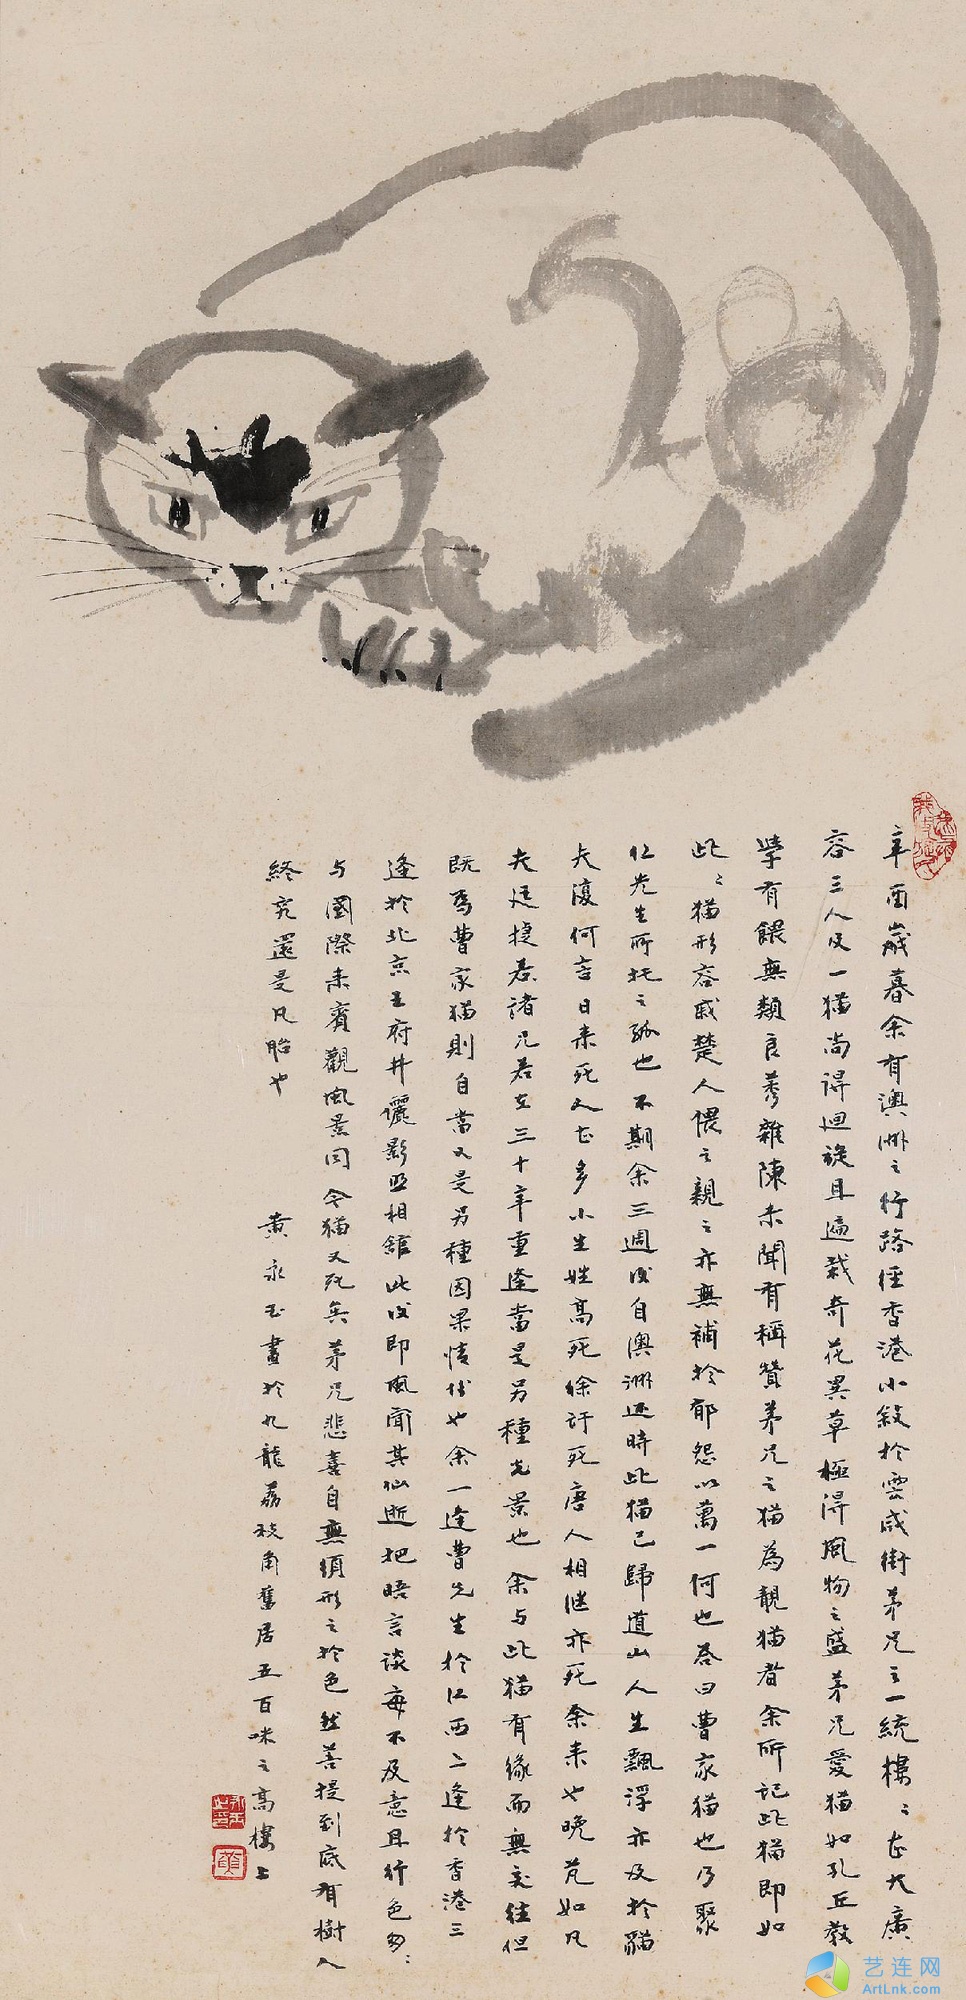 辛酉歲暮余有澳洲之行路經香港小敘於雲咸街茅兄之一統樓〻在大廣
容三人及一猫尚得迴旋且遍栽奇花異草極得風物之盛茅兄愛猫如孔丘教
學有餵無類良莠雜陳未聞有稱贊茅兄之猫為靚猫者余所記此猫即如
此〻猫形容戚楚人偎之親之亦無補於郁怨以萬一何也答曰曹家猫也乃聚
仁先生所托之孤也不期余三週後自澳洲返時此猫已歸道山人生飄浮亦及於貓
夫復何言日來死人甚多小生姓高死徐訏死唐人相继亦死余来也晚芃如凡
夫廷捷諸兄若在三十年重逢當是另種光景也余与此猫有緣而無交往但
既為曹家猫則自當又是另種因果情状也余一逢曹先生於江西二逢於香港三
逢於北京王府井儷影照相舘此後即風聞其仙逝把晤言談每不及意且行色匆〻
与國際来賓觀風景同今猫又死矣茅兄悲喜自無須形之於色然菩提到底有樹人
終究還是凡胎也
黄永玉畫於九龍荔枝角舊居五百咪之高樓上
艺连网
ArtLnk.com